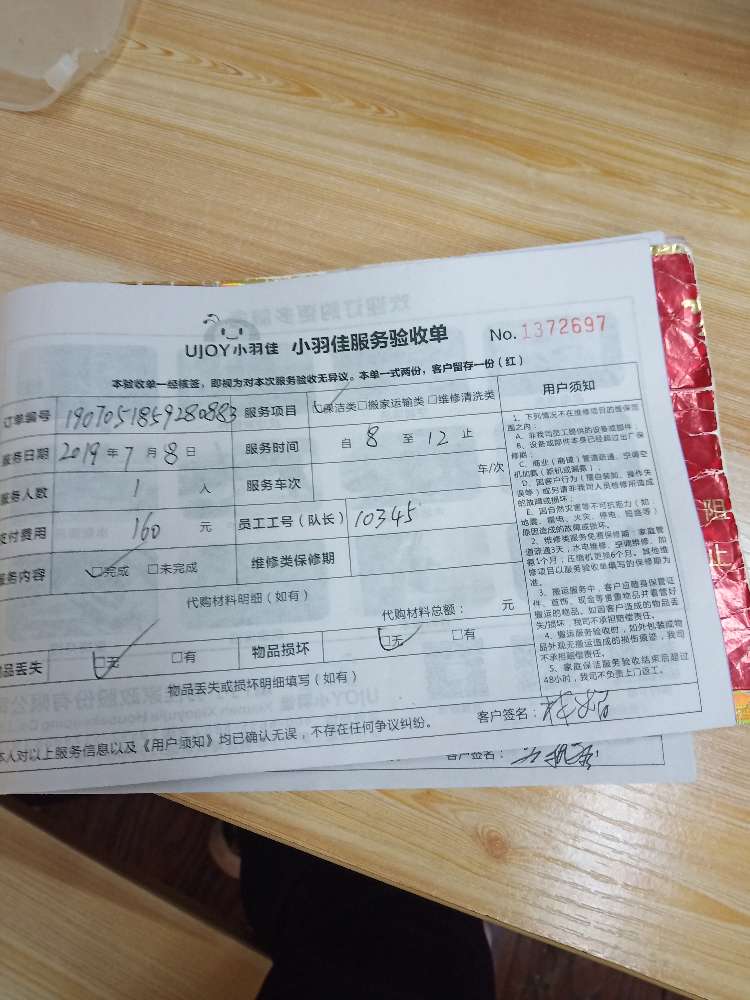 UJOY小羽佳 小羽佳服务验收单 No.1372697
本验收单一经核签，即视为对本次服务验收无异议。本单一式两份，客户留存一份（红）
订单编号 1907051859280883 服务项目 □保洁类□搬家运输类 □维修清洗类
服务日期 2019年7月8日 服务时间 自 8 至 12 止
服务人数 1 人 服务车次 车/次
支付费用 160 元 员工工号（队长） 10345
服务内容 □完成 □未完成 维修类保修期
代购材料明细（如有）
代购材料总额： 元
物品丢失 □无 □有 物品损坏 □无 □有
物品丢失或损坏明细填写（如有）
本人对以上服务信息以及《用户须知》均已确认无误，不存在任何争议纠纷。 客户签名：
用户须知
1、下列情况不在维修项目的维保范
围之内：
A、非我司员工提供的设备或部件；
B、设备或部件本身已经超过出厂保
修期；
C、商业（商铺）管道疏通、空调空
机加氨（新机或漏氨）；
D、因客户行为（擅自装卸、操作失
误等）或另请非我司人员检修所造成
的故障或损坏；
E、因自然灾害等不可抗拒力（如：
地震、雷电、火灾、停电、短路等）
原因造成的故障或损坏。
2、维修类服务免费保修期：家庭管
道疏通3天，水电维修、空调维修、加
氨1个月；压缩机更换6个月。其他维
修项目以服务验收单填写的保修期为
准。
3、搬运服务中，客户应随身保管证
件、首饰、现金等贵重物品并看管好
搬运的物品。如因客户造成的物品丢
失/损坏，我司不承担赔偿责任。
4、搬运服务验收时，如外包装或物
品外观无搬运造成的损伤痕迹，我司
不承担赔偿责任。
5、家庭保洁服务验收结束后超过
48小时，我司不负责上门返工。
客户签名：
阻
止